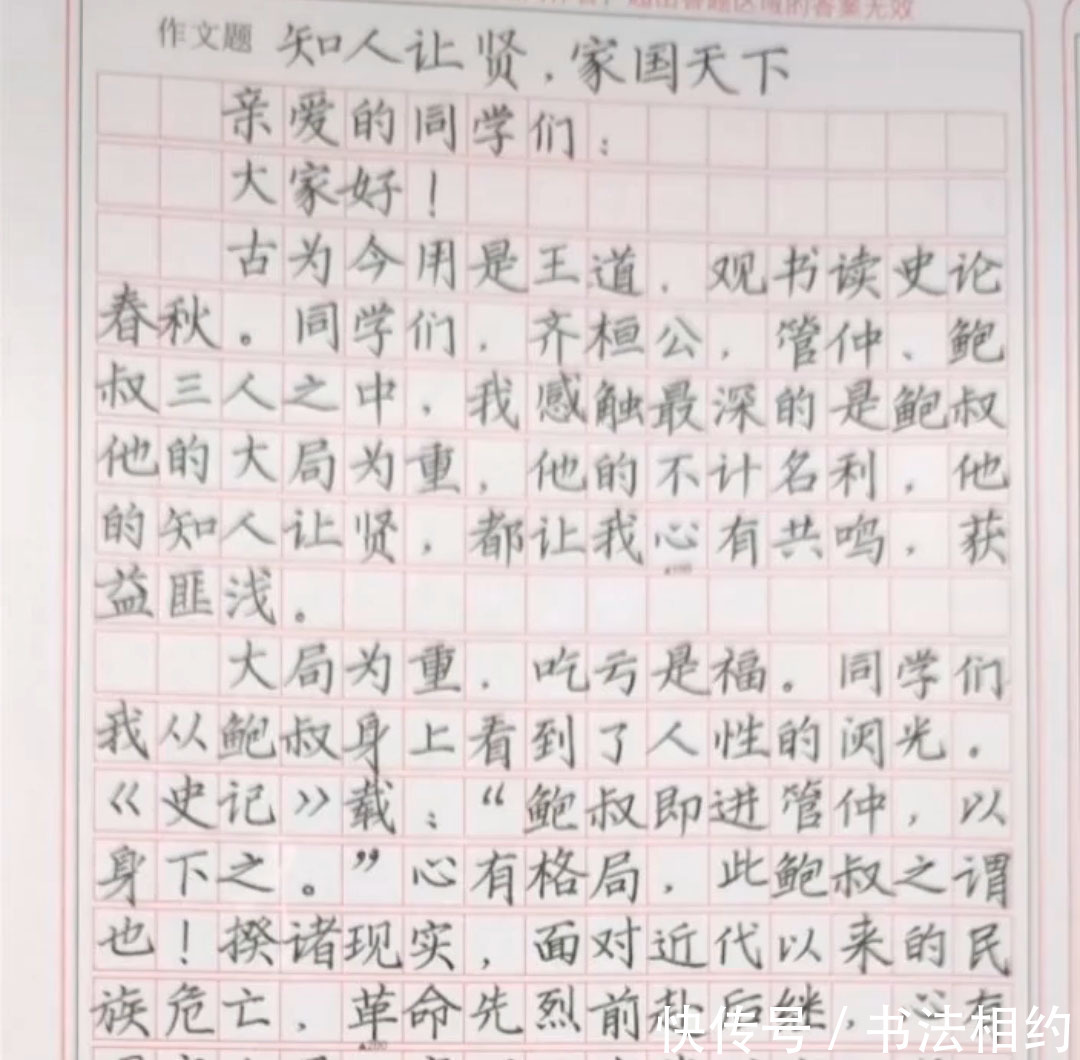 超出答题区域的答案无效
作文题 知人让贤，家国天下
亲爱的同学们：
大家好！
古为今用是王道，观书读史论
春秋。同学们，齐桓公，管仲、鲍
叔三人之中，我感触最深的是鲍叔
他的大局为重，他的不计名利，他
的知人让贤，都让我心有共鸣，获
益匪浅。
大局为重，吃亏是福。同学们
我从鲍叔身上看到了人性的闪光。
《史记》载：“鲍叔即进管仲，以
身下之。”心有格局，此鲍叔之谓
也！揆诸现实，面对近代以来的民
族危亡，革命先烈前赴后继，心有
快传号 / 书法相约